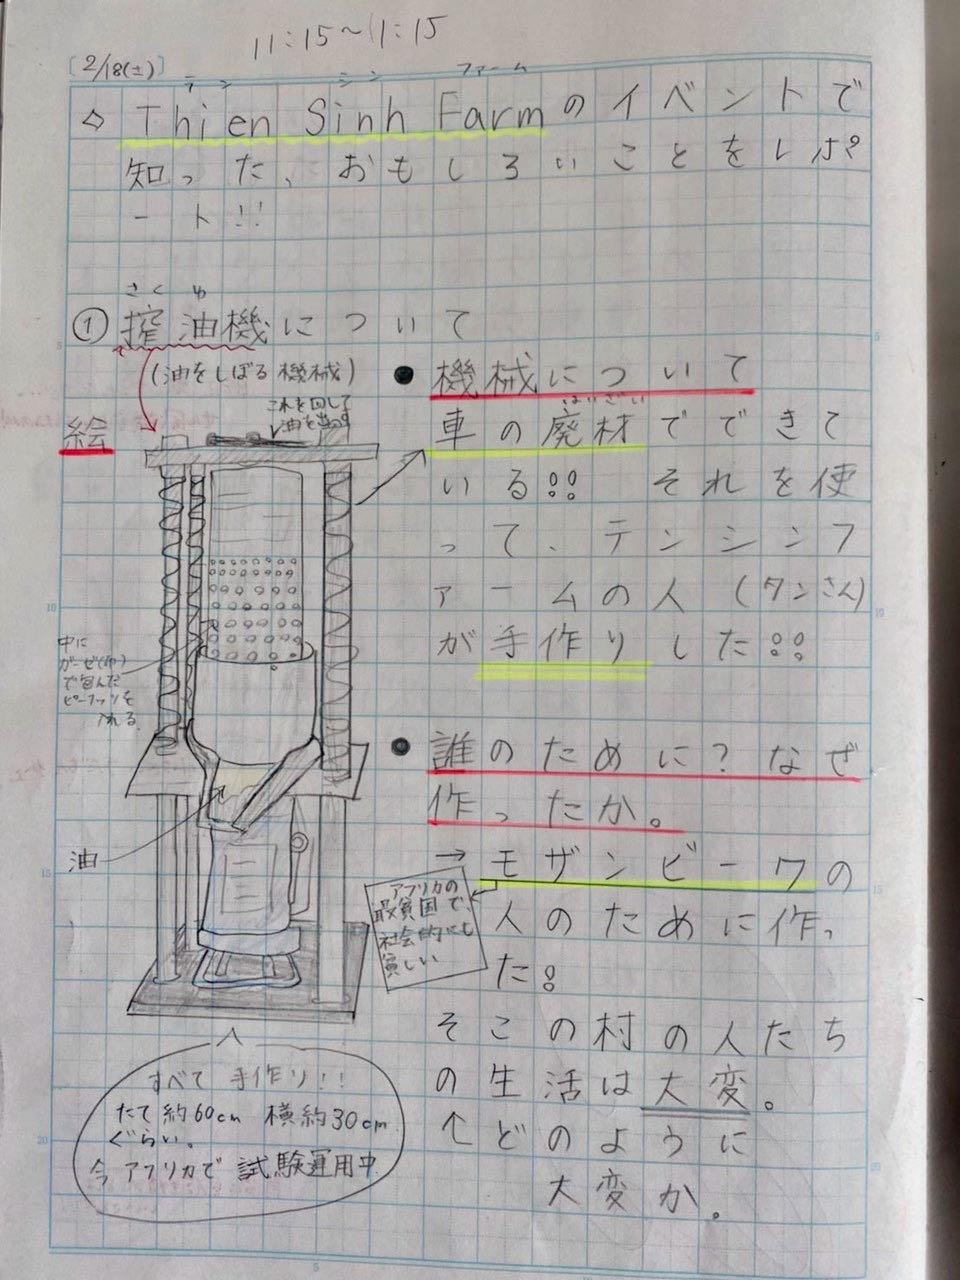 11:15〜11:15
[2/18(土)]
テン シン ファーム
◇ Thien Sinh Farmのイベントで
知った、おもしろいことをレポ
ート!!
さくゆ
① 搾油機について
(油をしぼる機械)
これを回して
油を出す
絵
中に
ガーゼ(布)
で包んだ
ピーナッツを
入れる
油
● 機械について
はいざい
車の廃材でできて
いる!! それを使
って、テンシンフ
ァームの人(タンさん)
が手作りした!!
● 誰のために?なぜ
作ったか。
→ モザンビークの
人のために作っ
た!
アフリカの
最貧国で、
社会的にも
貧しい
そこの村の人たち
の生活は大変。
↑どのように
大変か。
すべて手作り!!
たて約60cm 横約30cm
ぐらい。
今アフリカで試験運用中